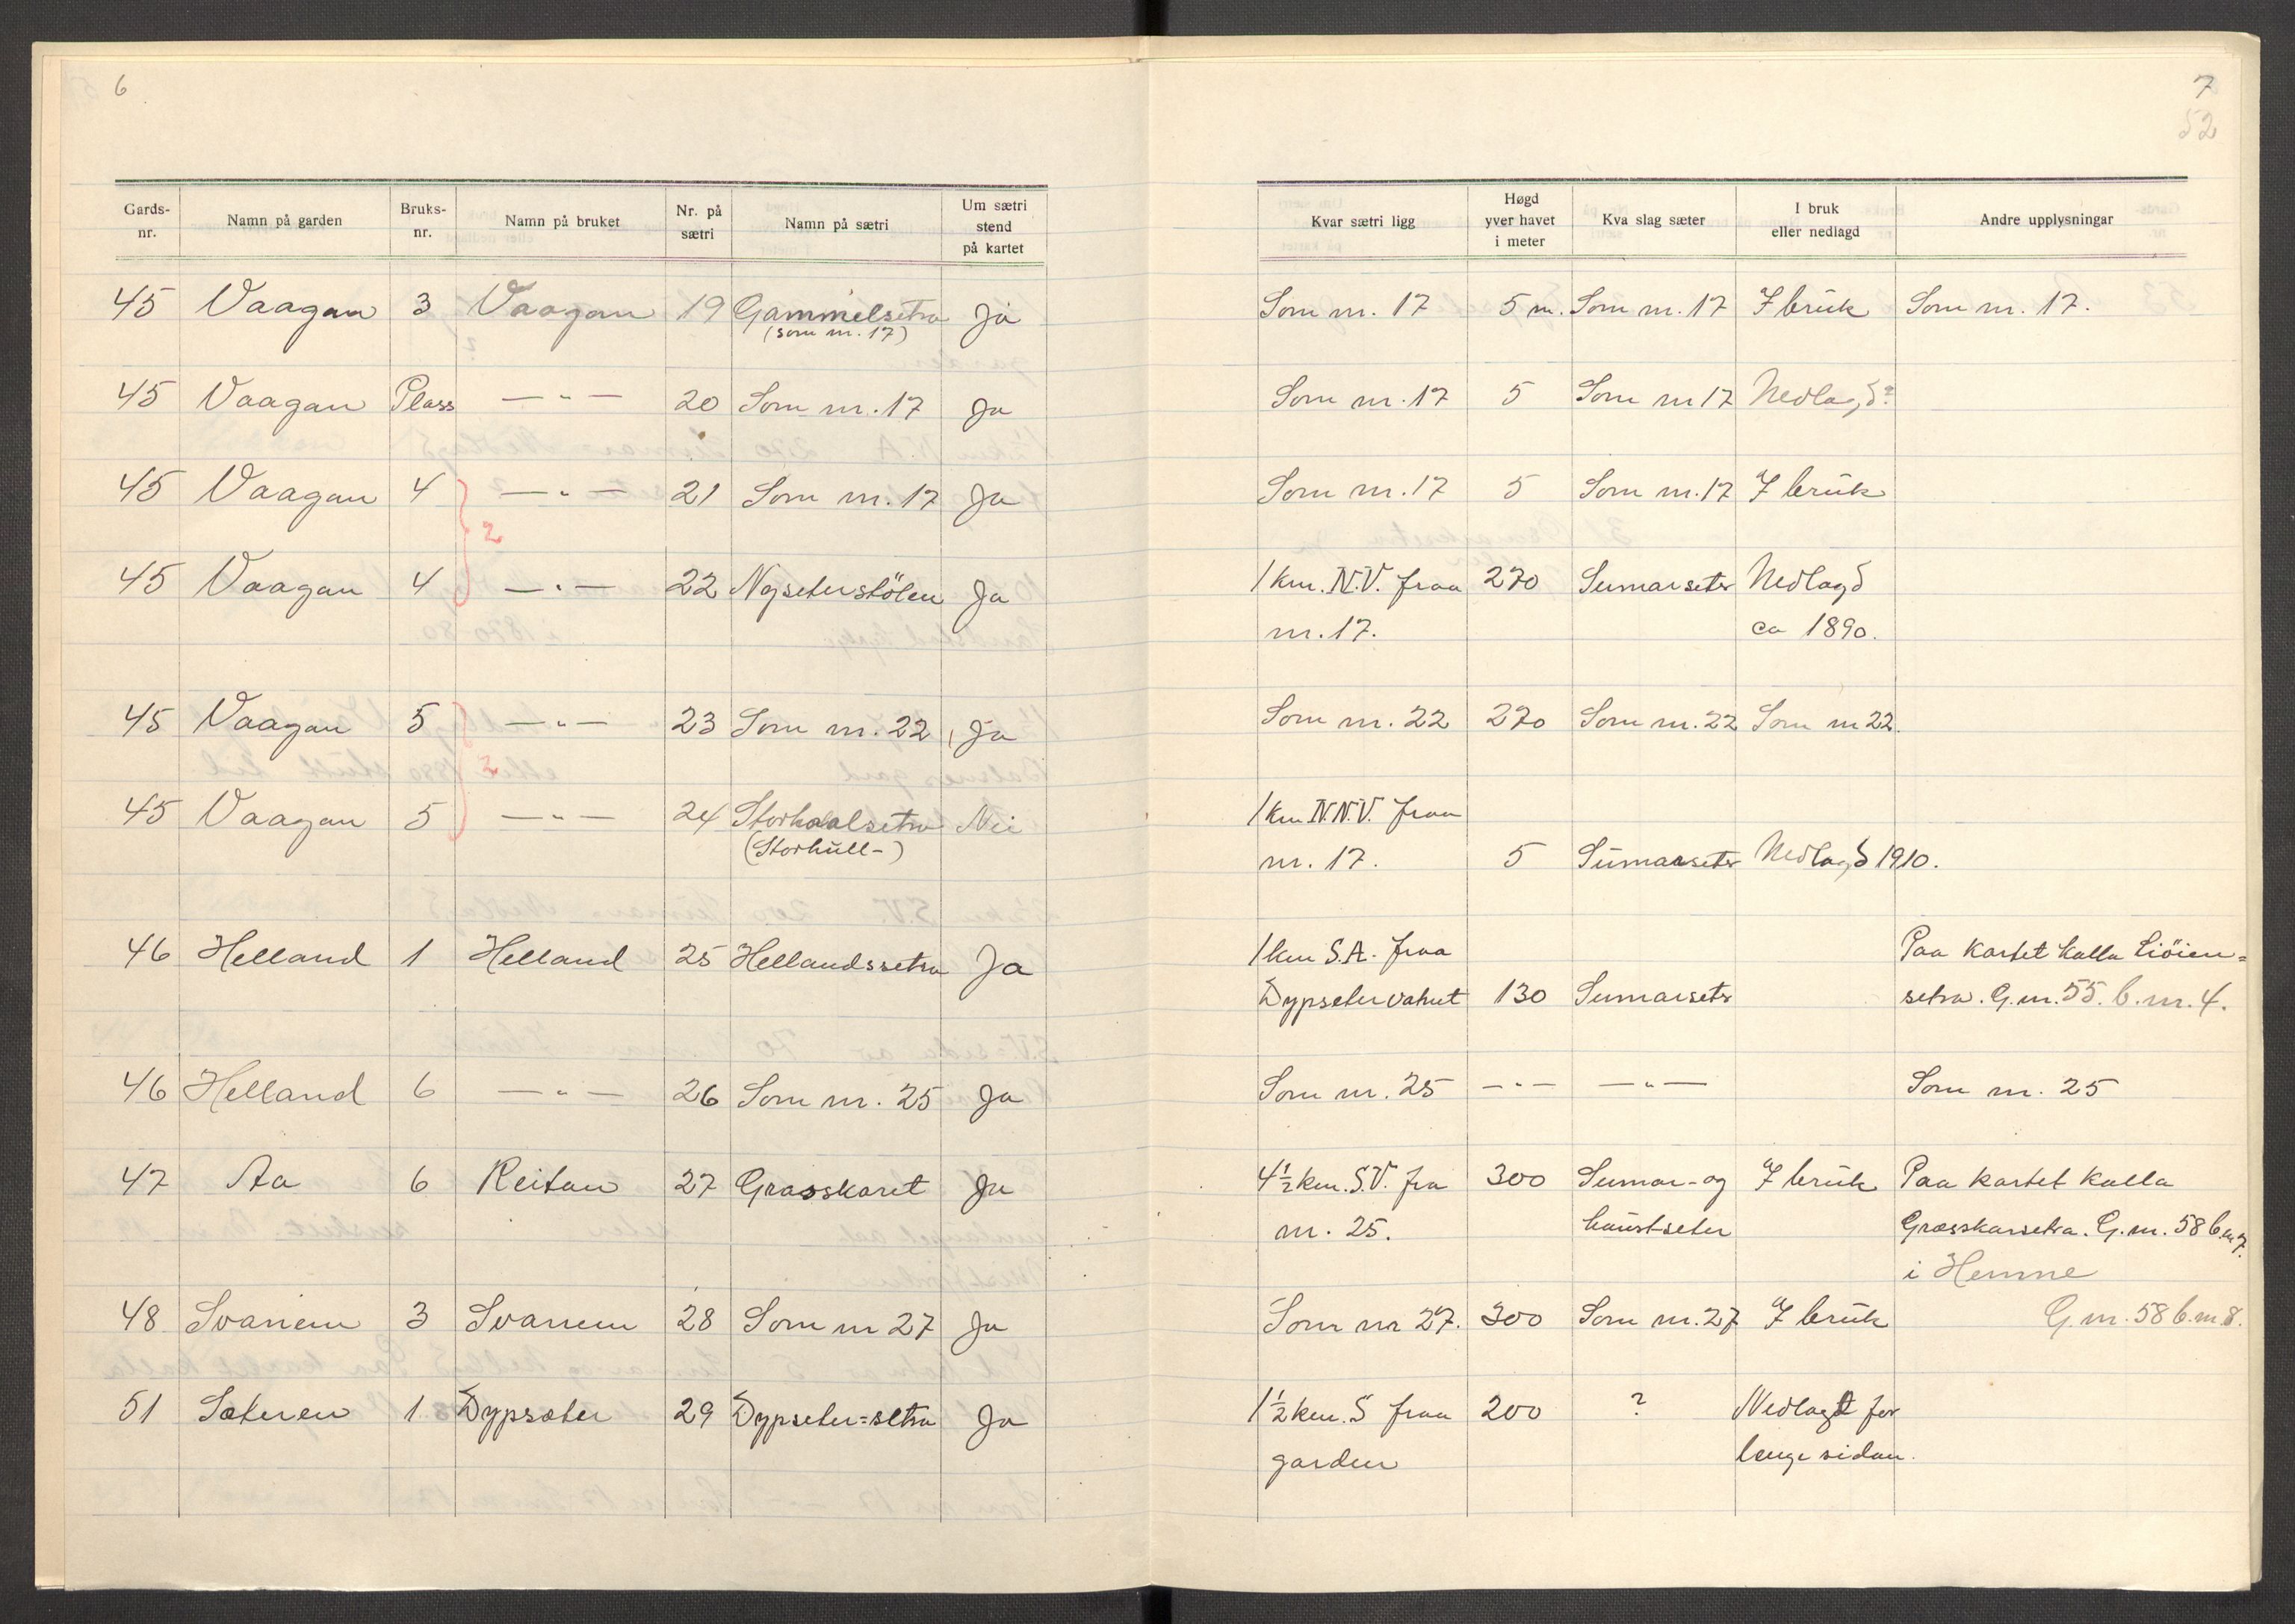 6
7
52
Gards-nr. | Namn på garden | Bruks-nr. | Namn på bruket | Nr. på sætri | Namn på sætri | Um sætri stend på kartet | Kvar sætri ligg | Høgd yver havet i meter | Kva slag sæter | I bruk eller nedlagd | Andre upplysningar
45 | Vaagan | 3 | Vaagan | 19 | Gammelsetra | Ja | Som nr. 17 | 5 m. | Som nr. 17 | I bruk | Som nr. 17.
(som nr. 17)
45 | Vaagan | Plass | —"— | 20 | Som nr. 17 | Ja | Som nr. 17 | 5 | Som nr 17 | Nedlagd?
45 | Vaagan | 4 | —"— | 21 | Som nr. 17 | Ja | Som nr. 17 | 5 | Som nr. 17 | I bruk
2
45 | Vaagan | 4 | —"— | 22 | Nyseterstölen | Ja | 1 km. N.V. fraa | 270 | Sumarseter | Nedlagd
nr. 17. | ca 1890.
45 | Vaagan | 5 | —"— | 23 | Som nr. 22 | Ja | Som nr. 22 | 270 | Som nr. 22 | Som nr 22.
2
45 | Vaagan | 5 | —"— | 24 | Storhaalsetra | Nei | 1 km N.N.V. fraa
(Storhull-) | nr. 17. | 5 | Sumarseter | Nedlagd 1910.
46 | Helland | 1 | Helland | 25 | Hellandssetra | Ja | 1 km S.A. fraa | Paa kartet kalla Liöien=
Dypsetervatnet | 130 | Sumarseter | setra. G.nr. 55. b.nr. 4.
46 | Helland | 6 | —"— | 26 | Som nr. 25 | Ja | Som nr. 25 | —"— | —"— | Som nr. 25
47 | Aa | 6 | Reitan | 27 | Grasskaret | Ja | 4½ km. S.V. fra | 300 | Sumar- og | I bruk | Paa kartet kalla
nr. 25. | haustseter | Grasskarsetra. G.nr. 58 b.nr 7.
i Hemne
48 | Svanem | 3 | Svanem | 28 | Som nr 27 | Ja | Som nr 27. | 300 | Som nr. 27 | I bruk | G.nr. 58 b.nr. 8.
51 | Sæteren | 1 | Dypsæter | 29 | Dypseter=setra | Ja | 1½ km. S fraa | 200 | ? | Nedlagt for
garden | lenge sidan.